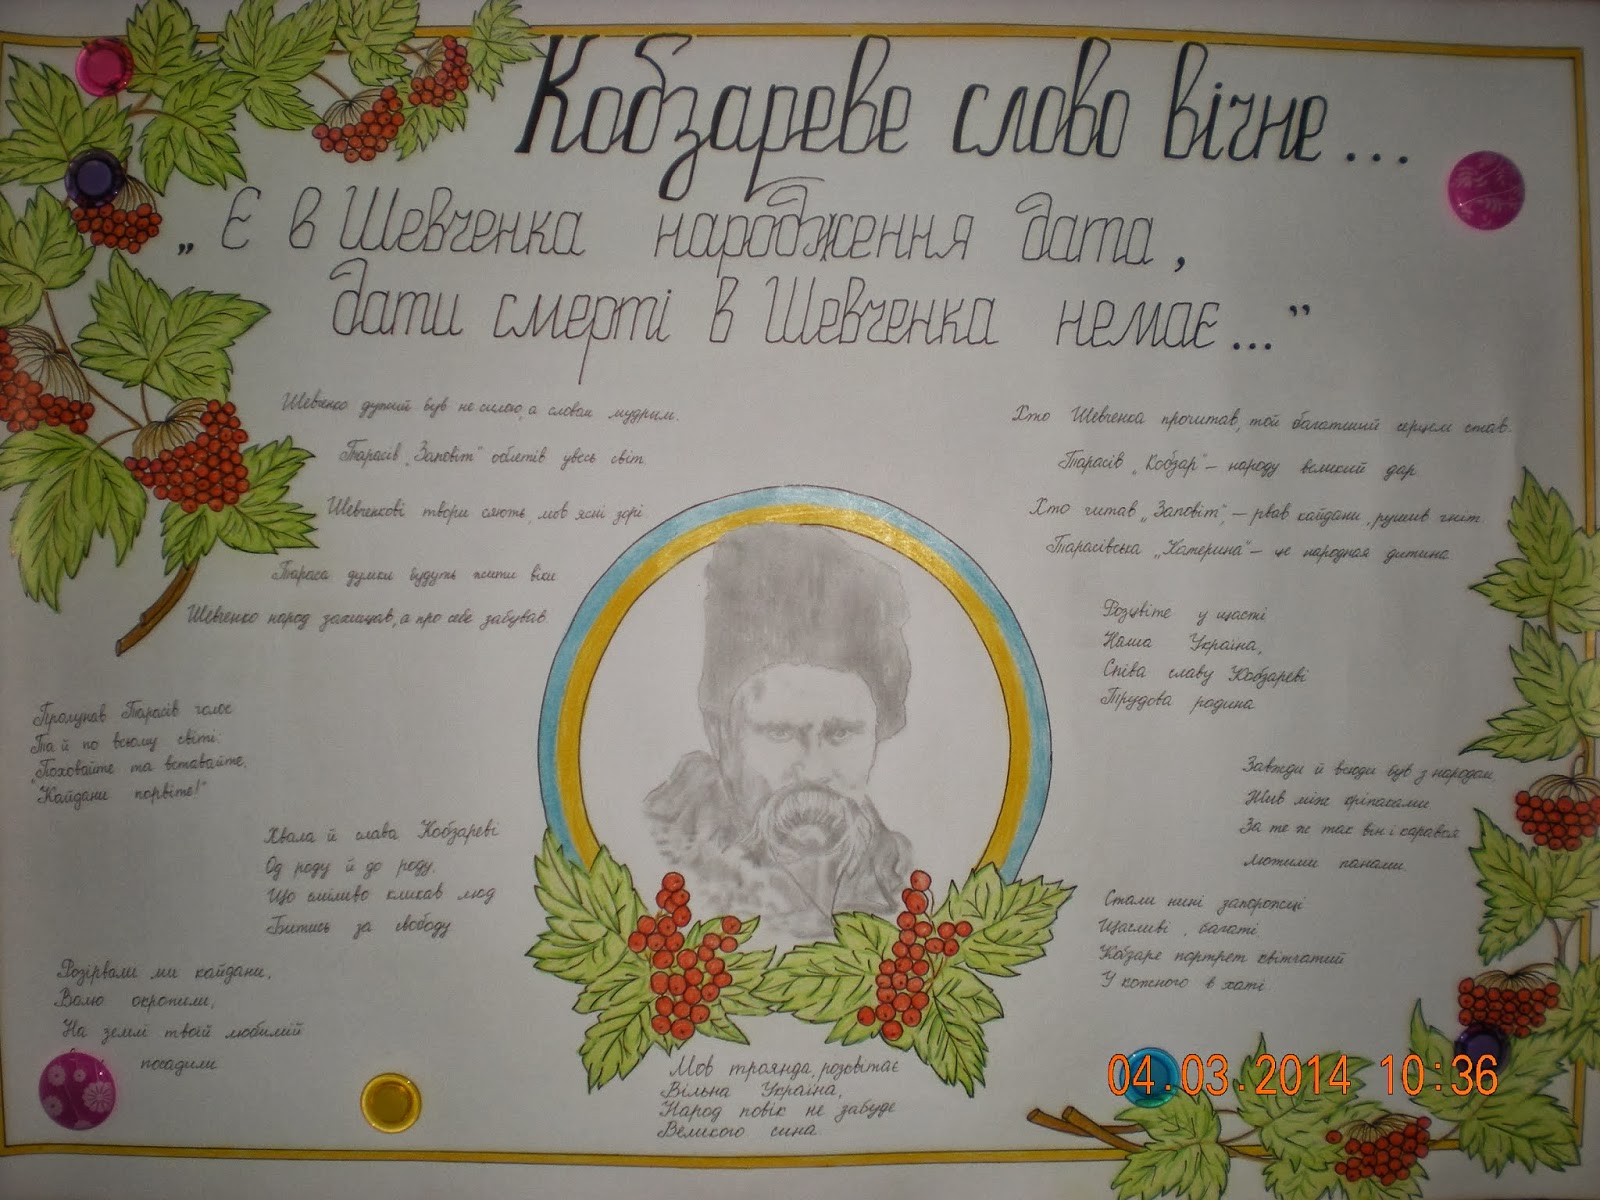 Кобзареве слово вічне...
„Є в Шевченка народження дата,
дати смерті в Шевченка немає...”
Шевченко дужий був не силою, а словом мудрим.
Тарасів „Заповіт” облетів увесь світ.
Шевченкові твори сяють, мов ясні зорі.
Тараса думки будуть жити віки
Шевченко народ захищав, а про себе забував.
Пролунав Тарасів голос
Та й по всьому світі:
„Поховайте та вставайте,
"Кайдани порвіте!"
Хвала й слава Кобзареві
Од роду й до роду,
Що сміливо кликав люд
Битись за свободу
Розірвали ми кайдани,
Волю окропили,
На землі твоїй любимій
посадили
Хто Шевченка прочитав, той багатший серцем став.
Тарасів „Кобзар” – народу великий дар
Хто читав „Заповіт”, – рвав кайдани, рушив гніт.
Тарасівська „Катерина” – це народная дитина
Розцвіте у щасті
Наша Україна,
Співа славу Кобзареві
Трудова родина
Завжди й всюди був з народом,
Жив між кріпаками
За те ж так він і карався
Лютими панами.
Стали нині запорожці
Щасливі, багаті
Кобзаре портрет квітчатий
У кожного в хаті.
Мов троянда, розквітає
Вільна Україна,
Народ повік не забуде
Великого сина.
04.03.2014 10:36